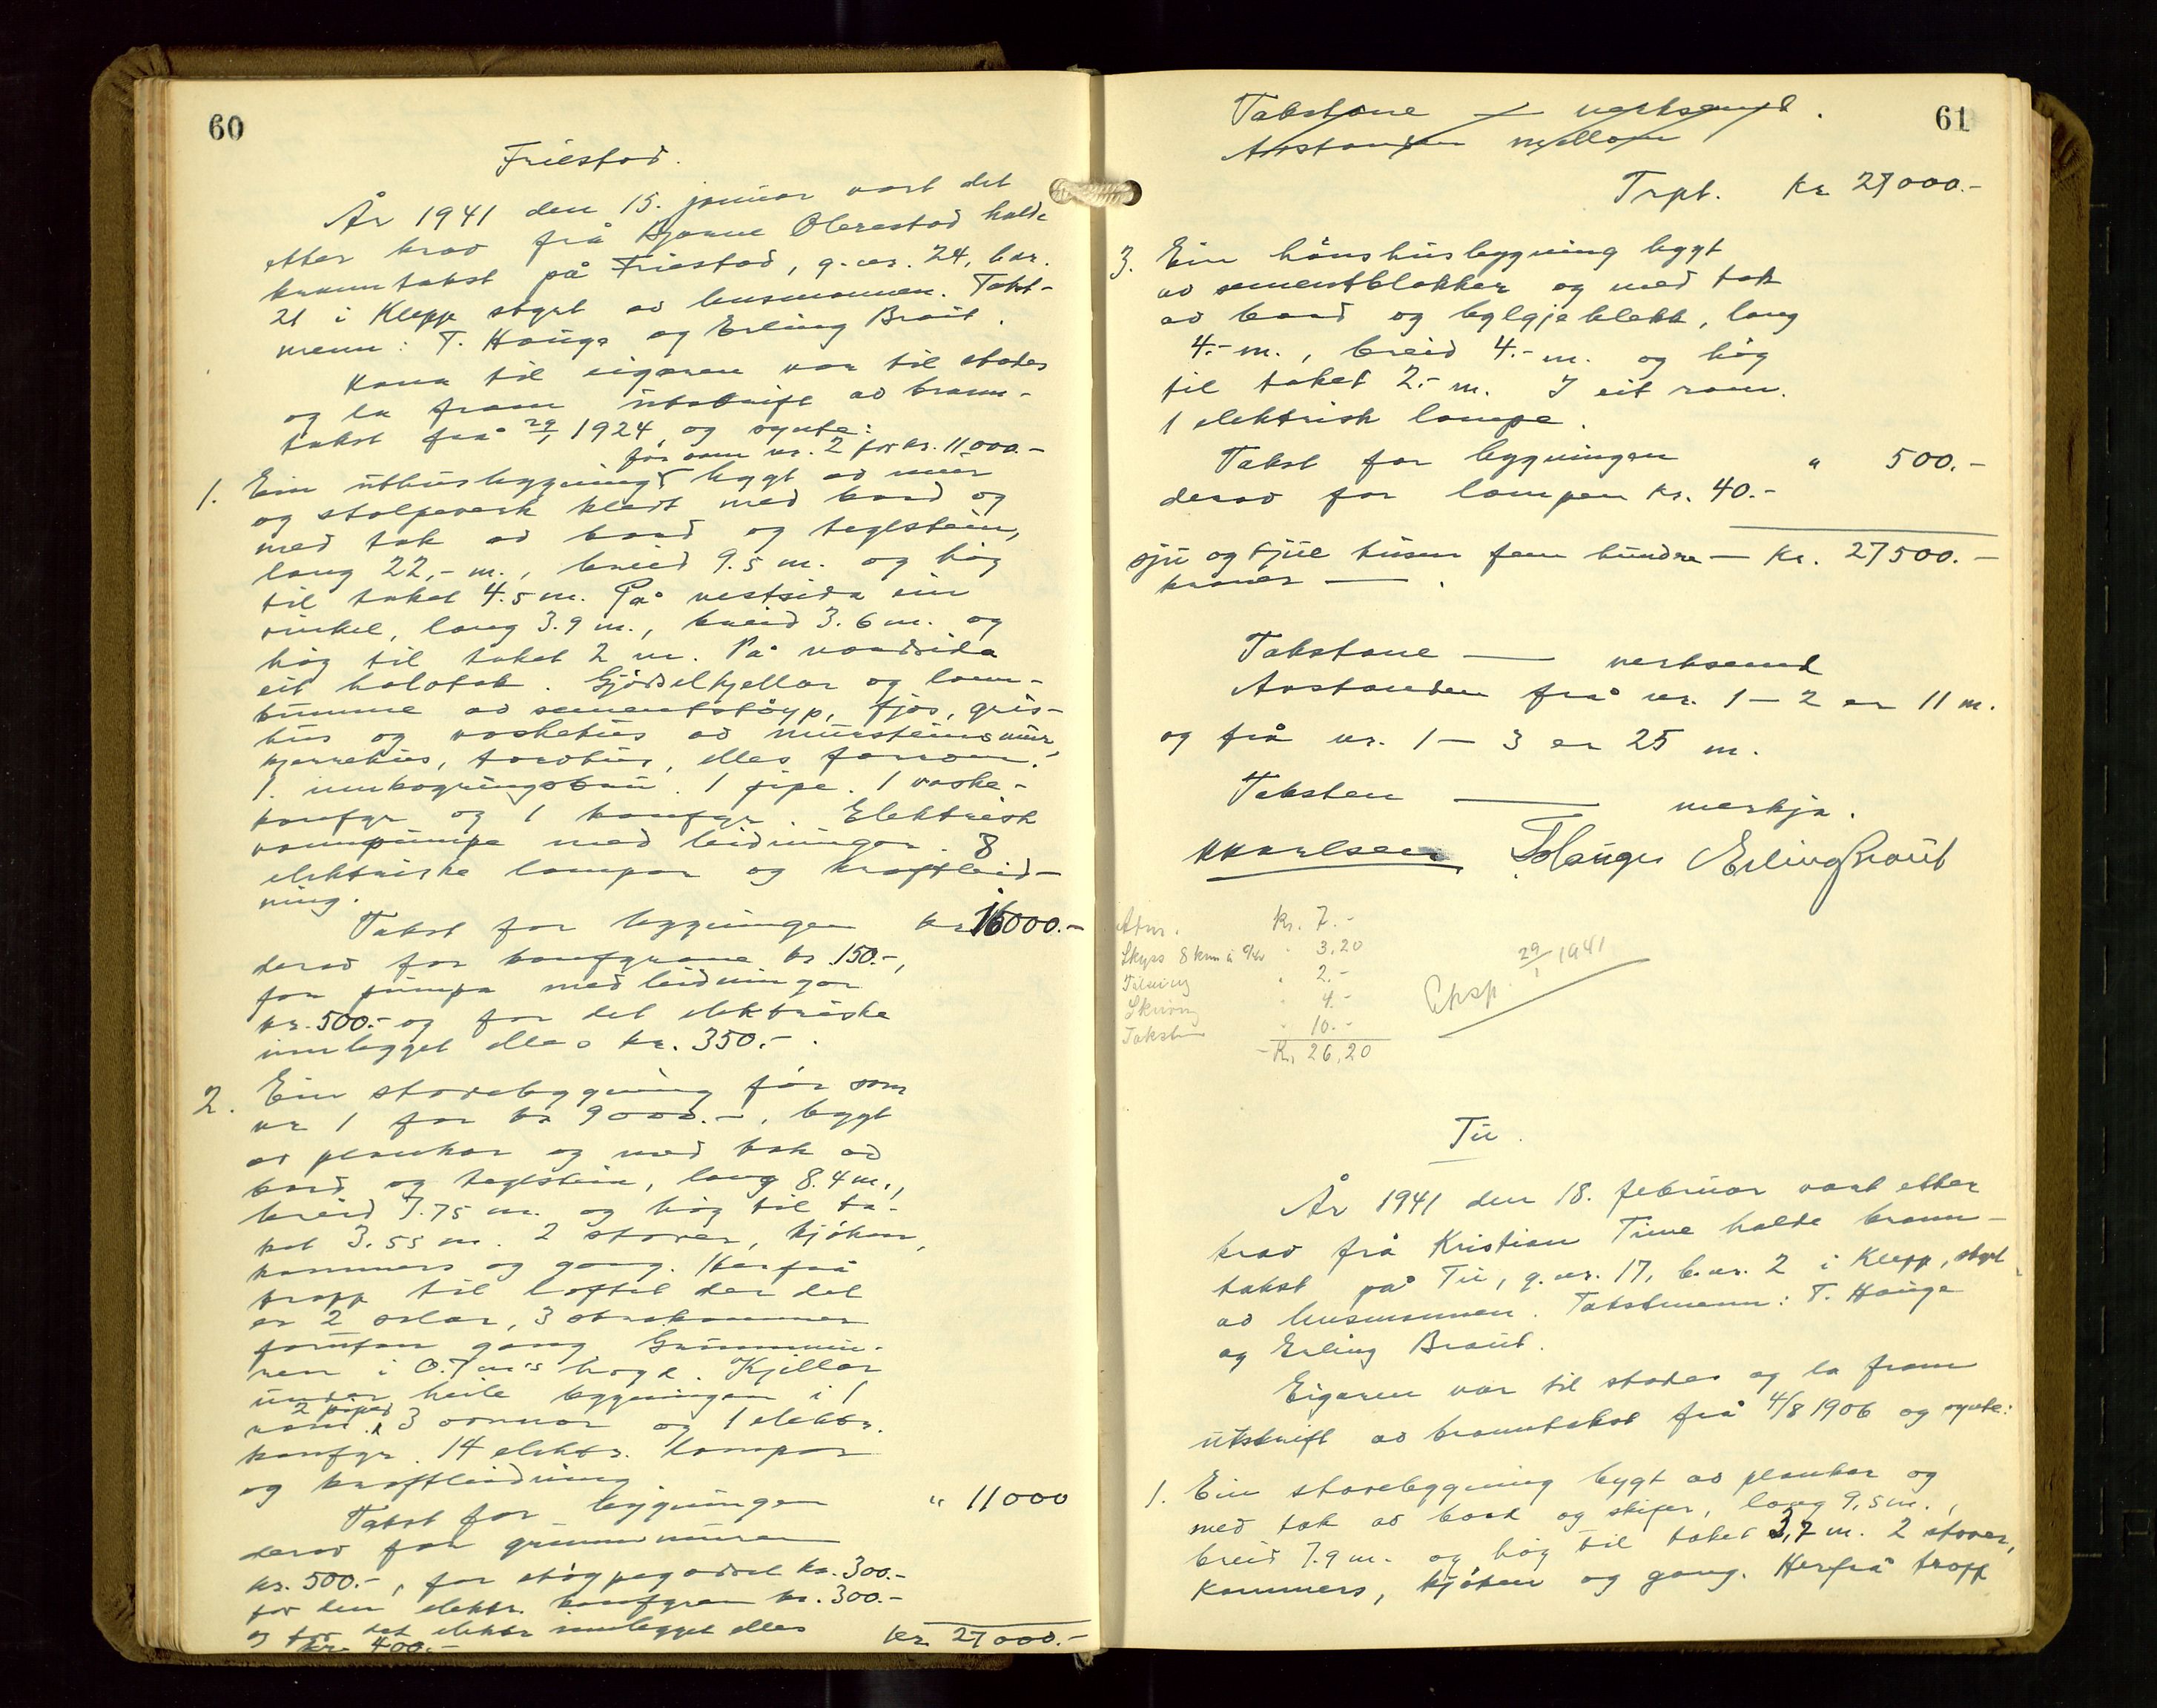 60
Friestad.
År 1941 den 15. januar vart det
etter krav frå Bjarne Obrestad halde
branntakst på Friestad, g.nr. 24, b.nr.
21 i Klepp styrt av lensmannen. Takst-
menn: T. Hauge og Erling Braut.
Kona til eigaren var til stades
og la fram utskrift av brann-
takst frå 29/1 1924, og synte:
før som nr. 2 for kr. 11000.-
1. Ein uthusbygning bygt av mur
og stolpeverk kledt med bord og
med tak av bord og teglstein,
lang 22,- m., breid 9.5 m. og høg
til taket 4.5 m. På vestsida ein
vinkel, lang 3.9 m., breid 3.6 m. og
høg til taket 2 m. På nordsida
eit halvtak. Gjødselkjellar og land-
kumme av sementstøyp, fjøs, gris-
hus og vaskehus av mursteinsmur,
kjerrehus, torvhus, elles forrom.
1 innkøyringsbru. 1 pipe. 1 vaske-
komfyr og 1 komfyr. Elektrisk
vannpumpe med leidningar. 8
elektriske lampor og kraftleid-
ning.
Takst for bygningen kr 16000.-
derav for komfyrane kr. 150.-,
for pumpa med leidningar
kr. 500.- og for det elektriske
innlegget elles kr. 350.-.
2. Ein stovebygning før som
nr 1 for kr 9000.-, bygt
av plankar og med tak av
bord og teglstein, lang 8.4 m.,
breid 7.75 m. og høg til ta-
ket 3.55 m. 2 stover, kjøken,
kammers og gang. Herfrå
tropp til loftet der det
er 2 salar, 3 kammer
forutan gang. Grunnmu-
ren i 0.7 m's høgd. Kjellar
under heile bygningen i 1
2 piper
rom. 3 omnar og 1 elektr.
komfyr. 14 elektr. lampor
og kraftleidning
Takst for bygningen " 11000
derav for grunnmuren
kr. 500.-, for kr. 300.-
for den elektr. komfyren kr. 300.-
og for det elektr innlegget elles
kr. 400.- Kr. 27000.-
61
Takstane — verksemd.
Avstanden mellom
Trpt. Kr 27000.-
3. Ein hønshusbygning bygt
av sementblokker og med tak
av bord og bylgjeblekk, lang
4.- m., breid 4.- m. og høg
til taket 2.- m. I eit rom.
1 elektrisk lampe.
Takst for bygningen " 500.-
derav for lampen kr. 40.-
sju og tjue tusen fem hundre — Kr. 27500.-
kroner — .
Takstane — verksemd
Avstanden frå nr. 1 – 2 er 11 m.
og frå nr. 1 – 3 er 25 m.
Taksten — merkja.
T Hauge Erling Braut
Kr. 7.-
Skyss 8 km " 3,20
" 2.-
Skriving " 4.-
Takstm " 10.-
Kr. 26,20
Eksp. 29/1 1941
Tu.
År 1941 den 18. februar vart etter
krav frå Kristian Time halde brann-
takst på Tu, g.nr. 17, b.nr. 2 i Klepp, styrt
av lensmannen. Takstmenn: T. Hauge
og Erling Braut.
Eigaren var til stades og la fram
utskrift av branntakst frå 4/8 1906 og synte:
1. Ein stovebygning bygt av plankar og
med tak av bord og skifer, lang 9,5 m.,
breid 7.9 m. og høg til taket 3,7 m. 2 stover,
kammers, kjøken og gang. Herfrå tropp